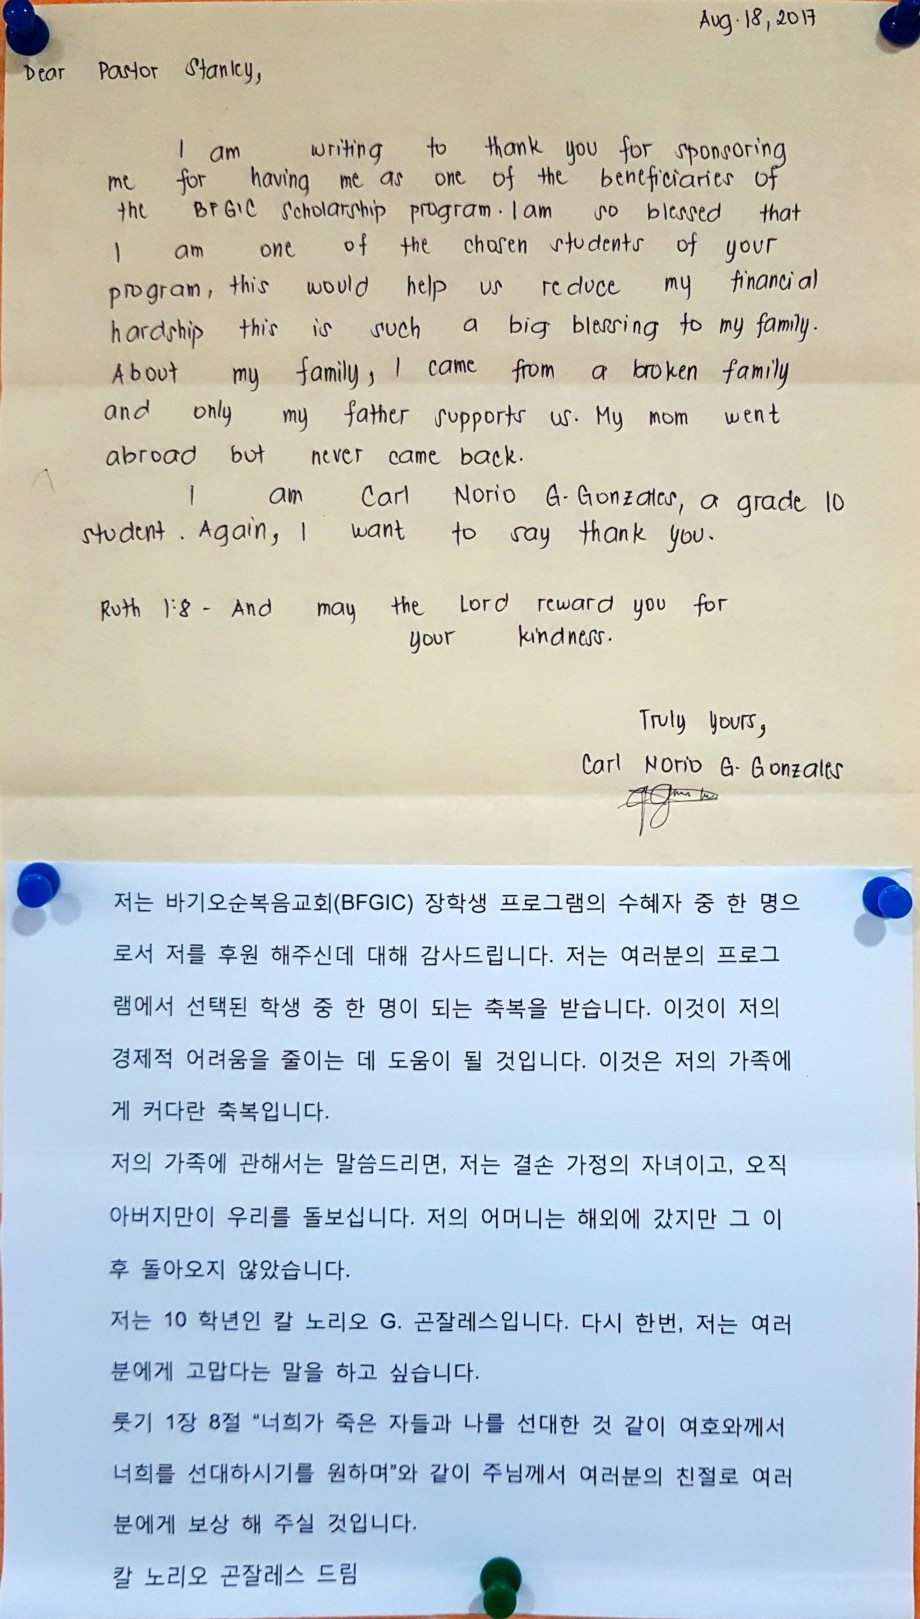 Aug. 18, 2017
Dear Pastor Stanley,
I am writing to thank you for sponsoring
me for having me as one of the beneficiaries of
the BFGIC Scholarship program. I am so blessed that
I am one of the chosen students of your
program, this would help us reduce my financial
hardship this is such a big blessing to my family.
About my family, I came from a broken family
and only my father supports us. My mom went
abroad but never came back.
I am Carl Norio G. Gonzales, a grade 10
student. Again, I want to say thank you.
Ruth 1:8 - And may the Lord reward you for
your kindness.
Truly yours,
Carl Norio G. Gonzales
저는 바기오순복음교회(BFGIC) 장학생 프로그램의 수혜자 중 한 명으
로서 저를 후원 해주신데 대해 감사드립니다. 저는 여러분의 프로그
램에서 선택된 학생 중 한 명이 되는 축복을 받습니다. 이것이 저의
경제적 어려움을 줄이는 데 도움이 될 것입니다. 이것은 저의 가족에
게 커다란 축복입니다.
저의 가족에 관해서는 말씀드리면, 저는 결손 가정의 자녀이고, 오직
아버지만이 우리를 돌보십니다. 저의 어머니는 해외에 갔지만 그 이
후 돌아오지 않았습니다.
저는 10 학년인 칼 노리오 G. 곤잘레스입니다. 다시 한번, 저는 여러
분에게 고맙다는 말을 하고 싶습니다.
룻기 1장 8절 “너희가 죽은 자들과 나를 선대한 것 같이 여호와께서
너희를 선대하시기를 원하며”와 같이 주님께서 여러분의 친절로 여러
분에게 보상 해 주실 것입니다.
칼 노리오 곤잘레스 드림